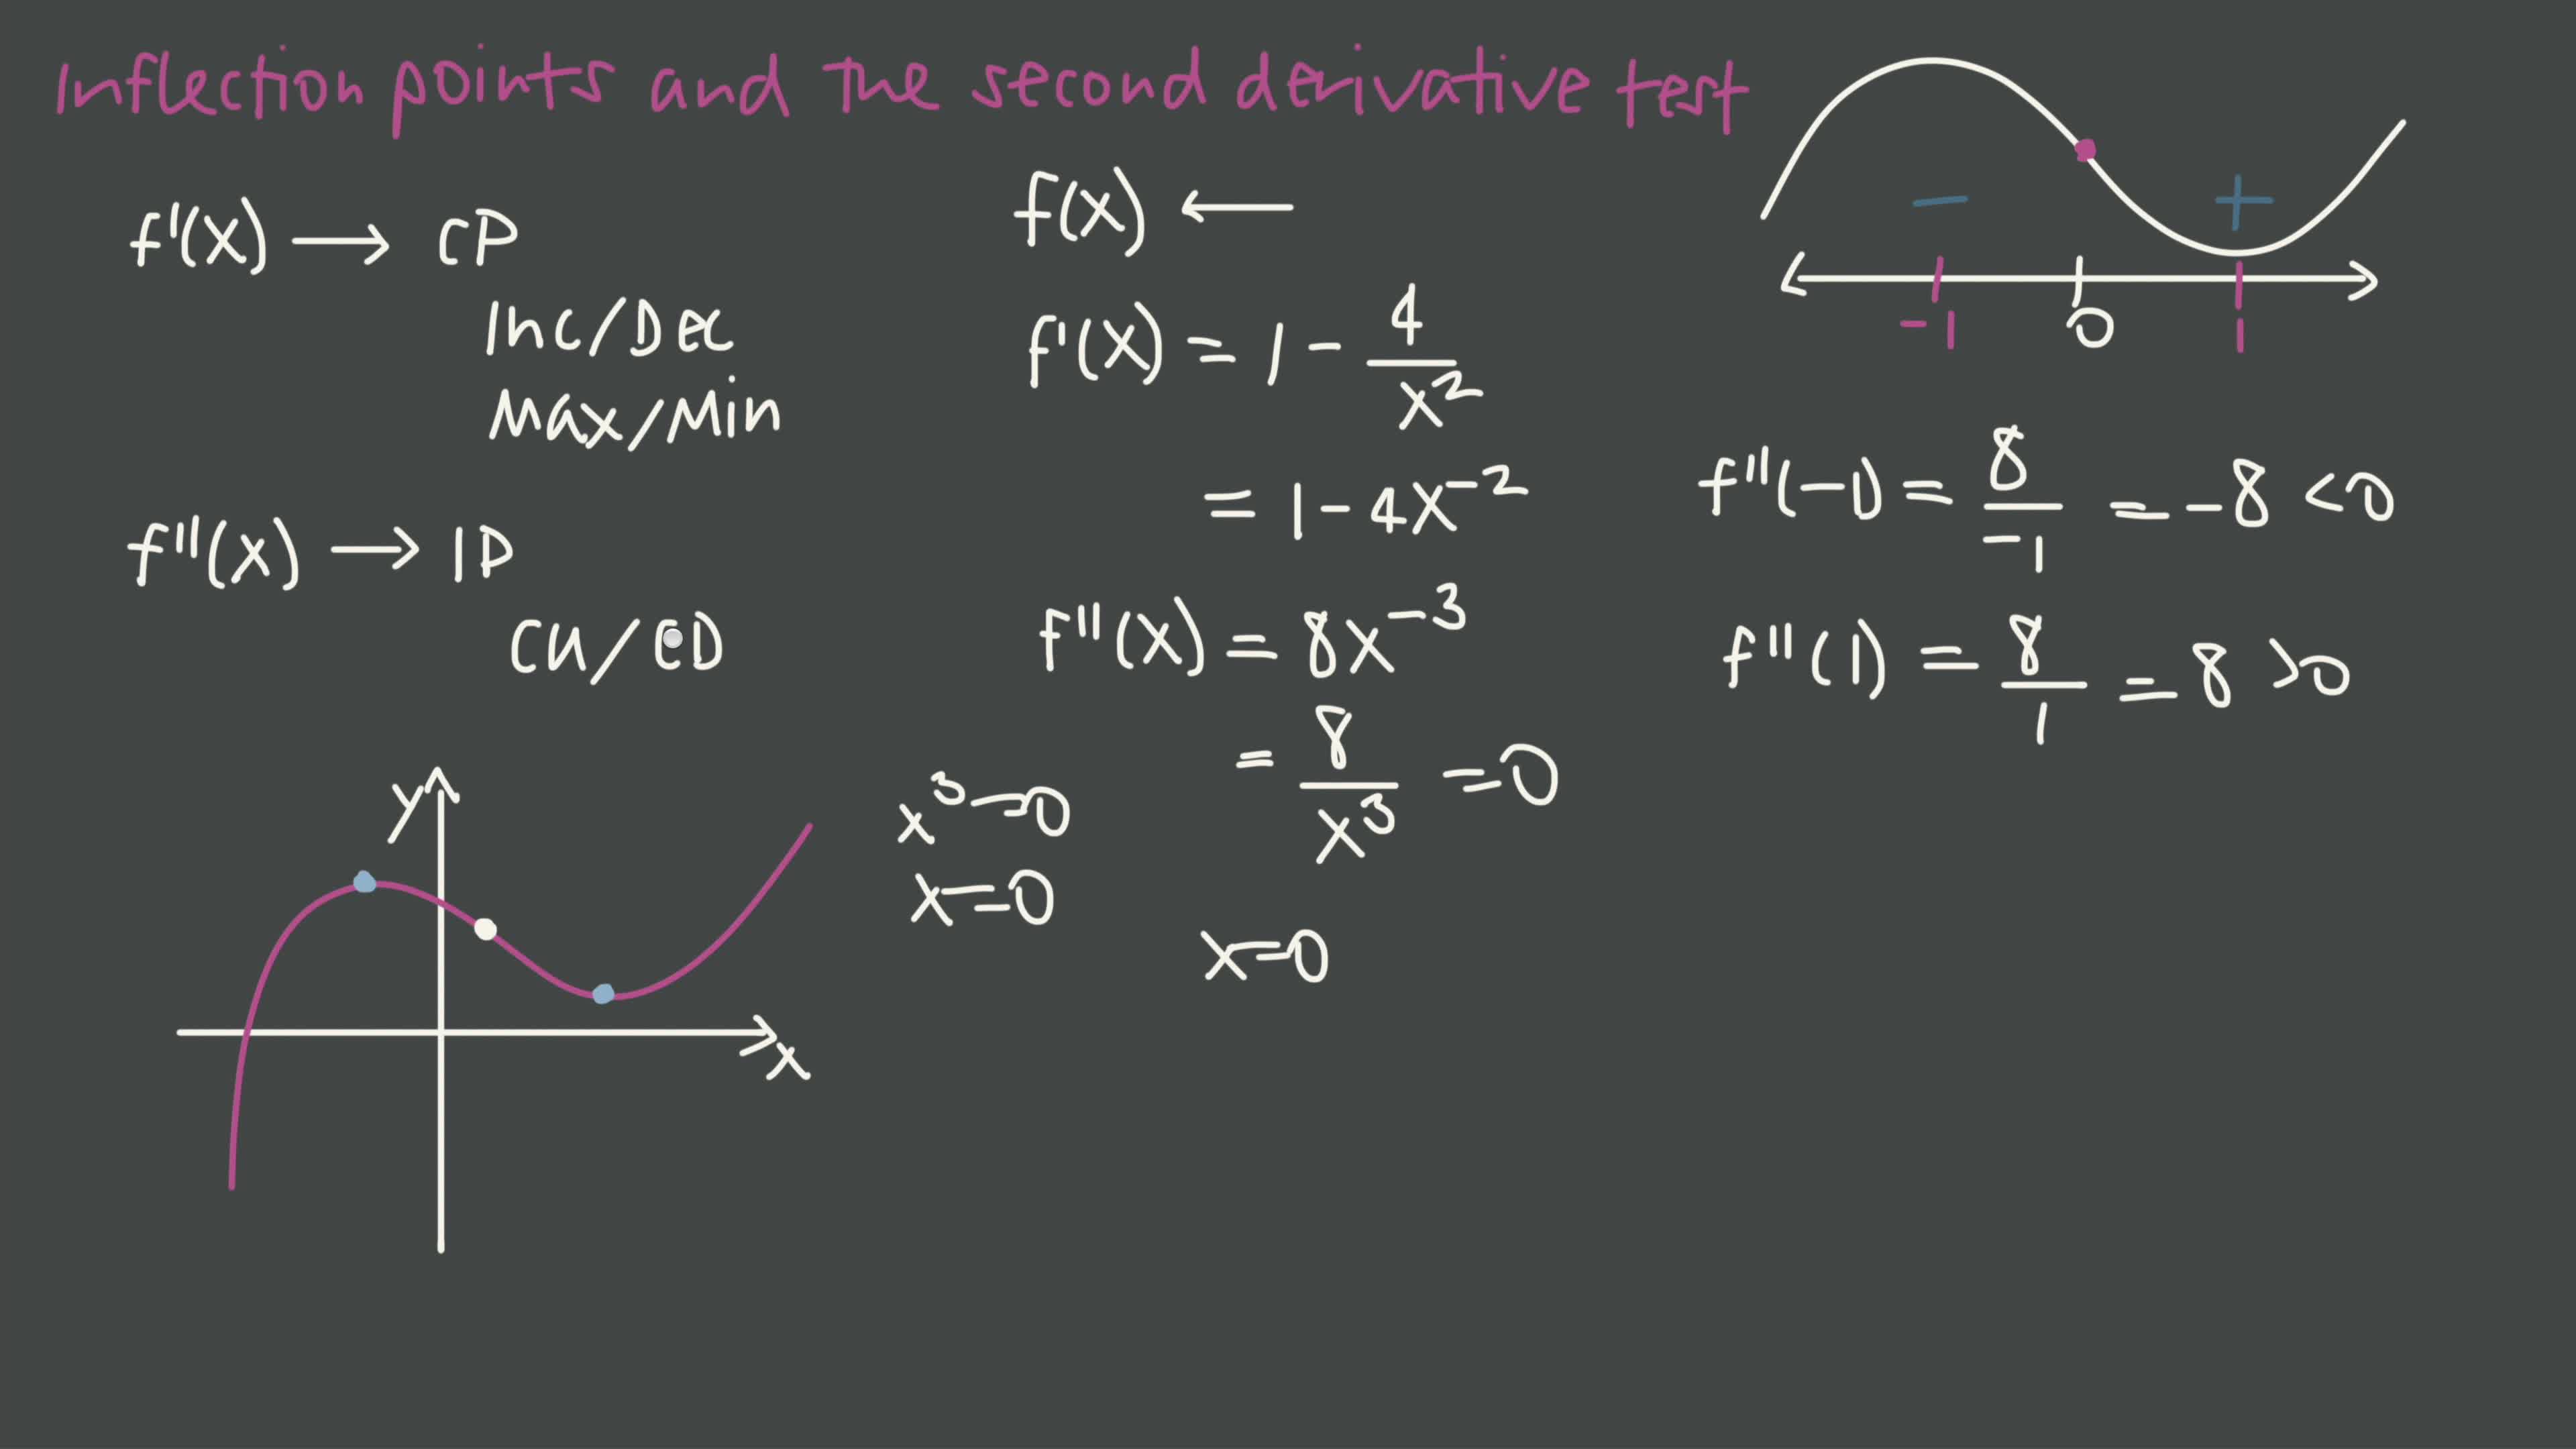 Inflection points and the second derivative test
f'(x) → CP
Inc/Dec
Max/Min
f''(x) → IP
CU/CD
y
x
f(x) ←
f'(x) = 1 - 4/x²
= 1 - 4x⁻²
f''(x) = 8x⁻³
= 8/x³ = 0
x³ = 0
x = 0
x = 0
- +
-1 0 1
f''(-1) = 8/-1 = -8 < 0
f''(1) = 8/1 = 8 > 0